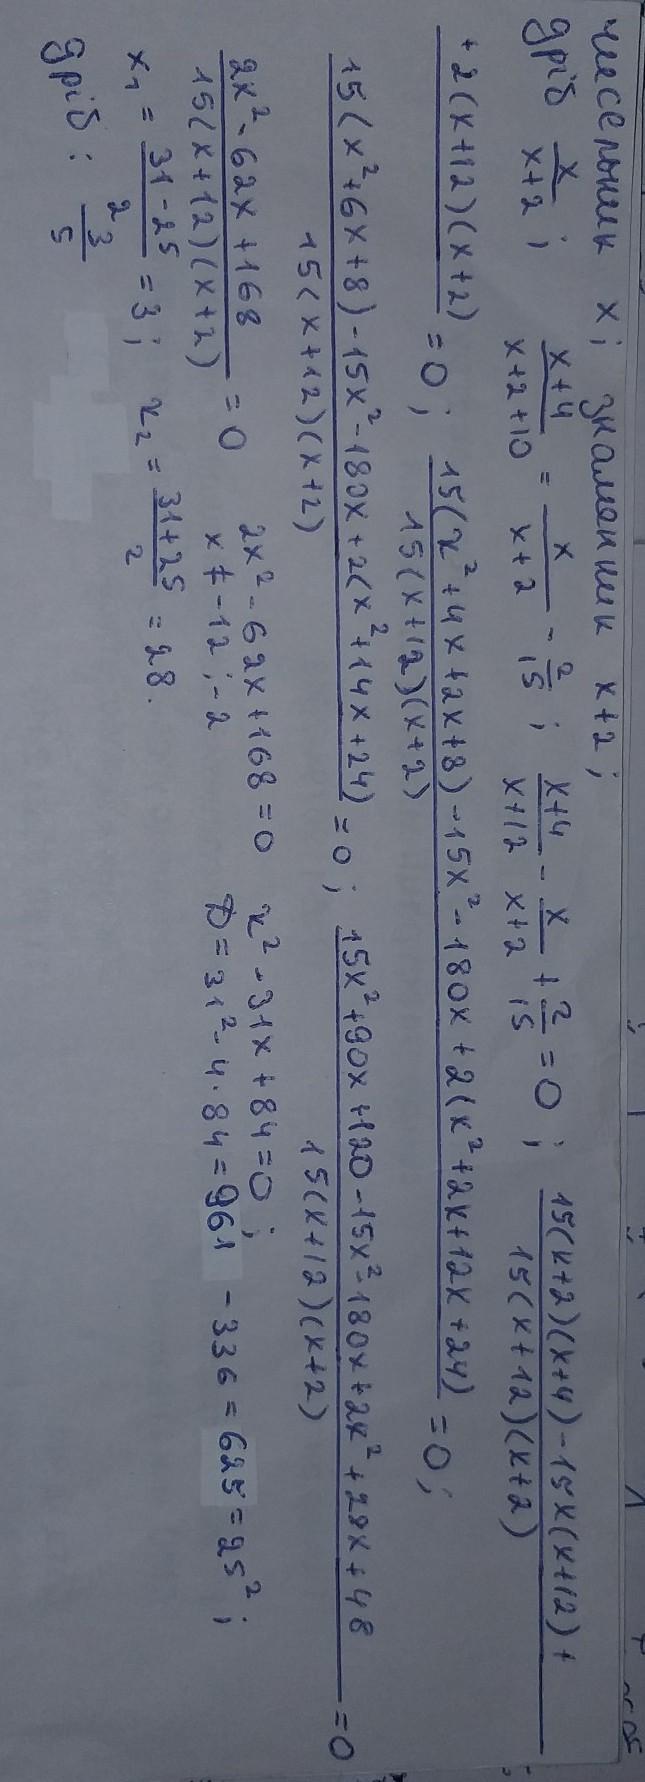 чисельник x; знаменник x+2;
дріб x/(x+2); (x+4)/(x+2+10) = x/(x+2) - 2/15; (x+4)/(x+12) - x/(x+2) + 2/15 = 0; (15(x+2)(x+4) - 15x(x+12) +)/(15(x+12)(x+2))
+ 2(x+12)(x+2) = 0; (15(x²+4x+2x+8) - 15x² - 180x + 2(x²+2x+12x+24))/(15(x+12)(x+2)) = 0;
(15(x²+6x+8) - 15x² - 180x + 2(x²+14x+24))/(15(x+12)(x+2)) = 0; (15x²+90x+120 - 15x² - 180x + 2x² + 28x + 48)/(15(x+12)(x+2)) = 0
(2x² - 62x + 168)/(15(x+12)(x+2)) = 0 2x² - 62x + 168 = 0 x² - 31x + 84 = 0;
x ≠ -12; -2 D = 31² - 4·84 = 961 - 336 = 625 = 25²;
x₁ = (31-25)/2 = 3; x₂ = (31+25)/2 = 28.
дріб: 3/5